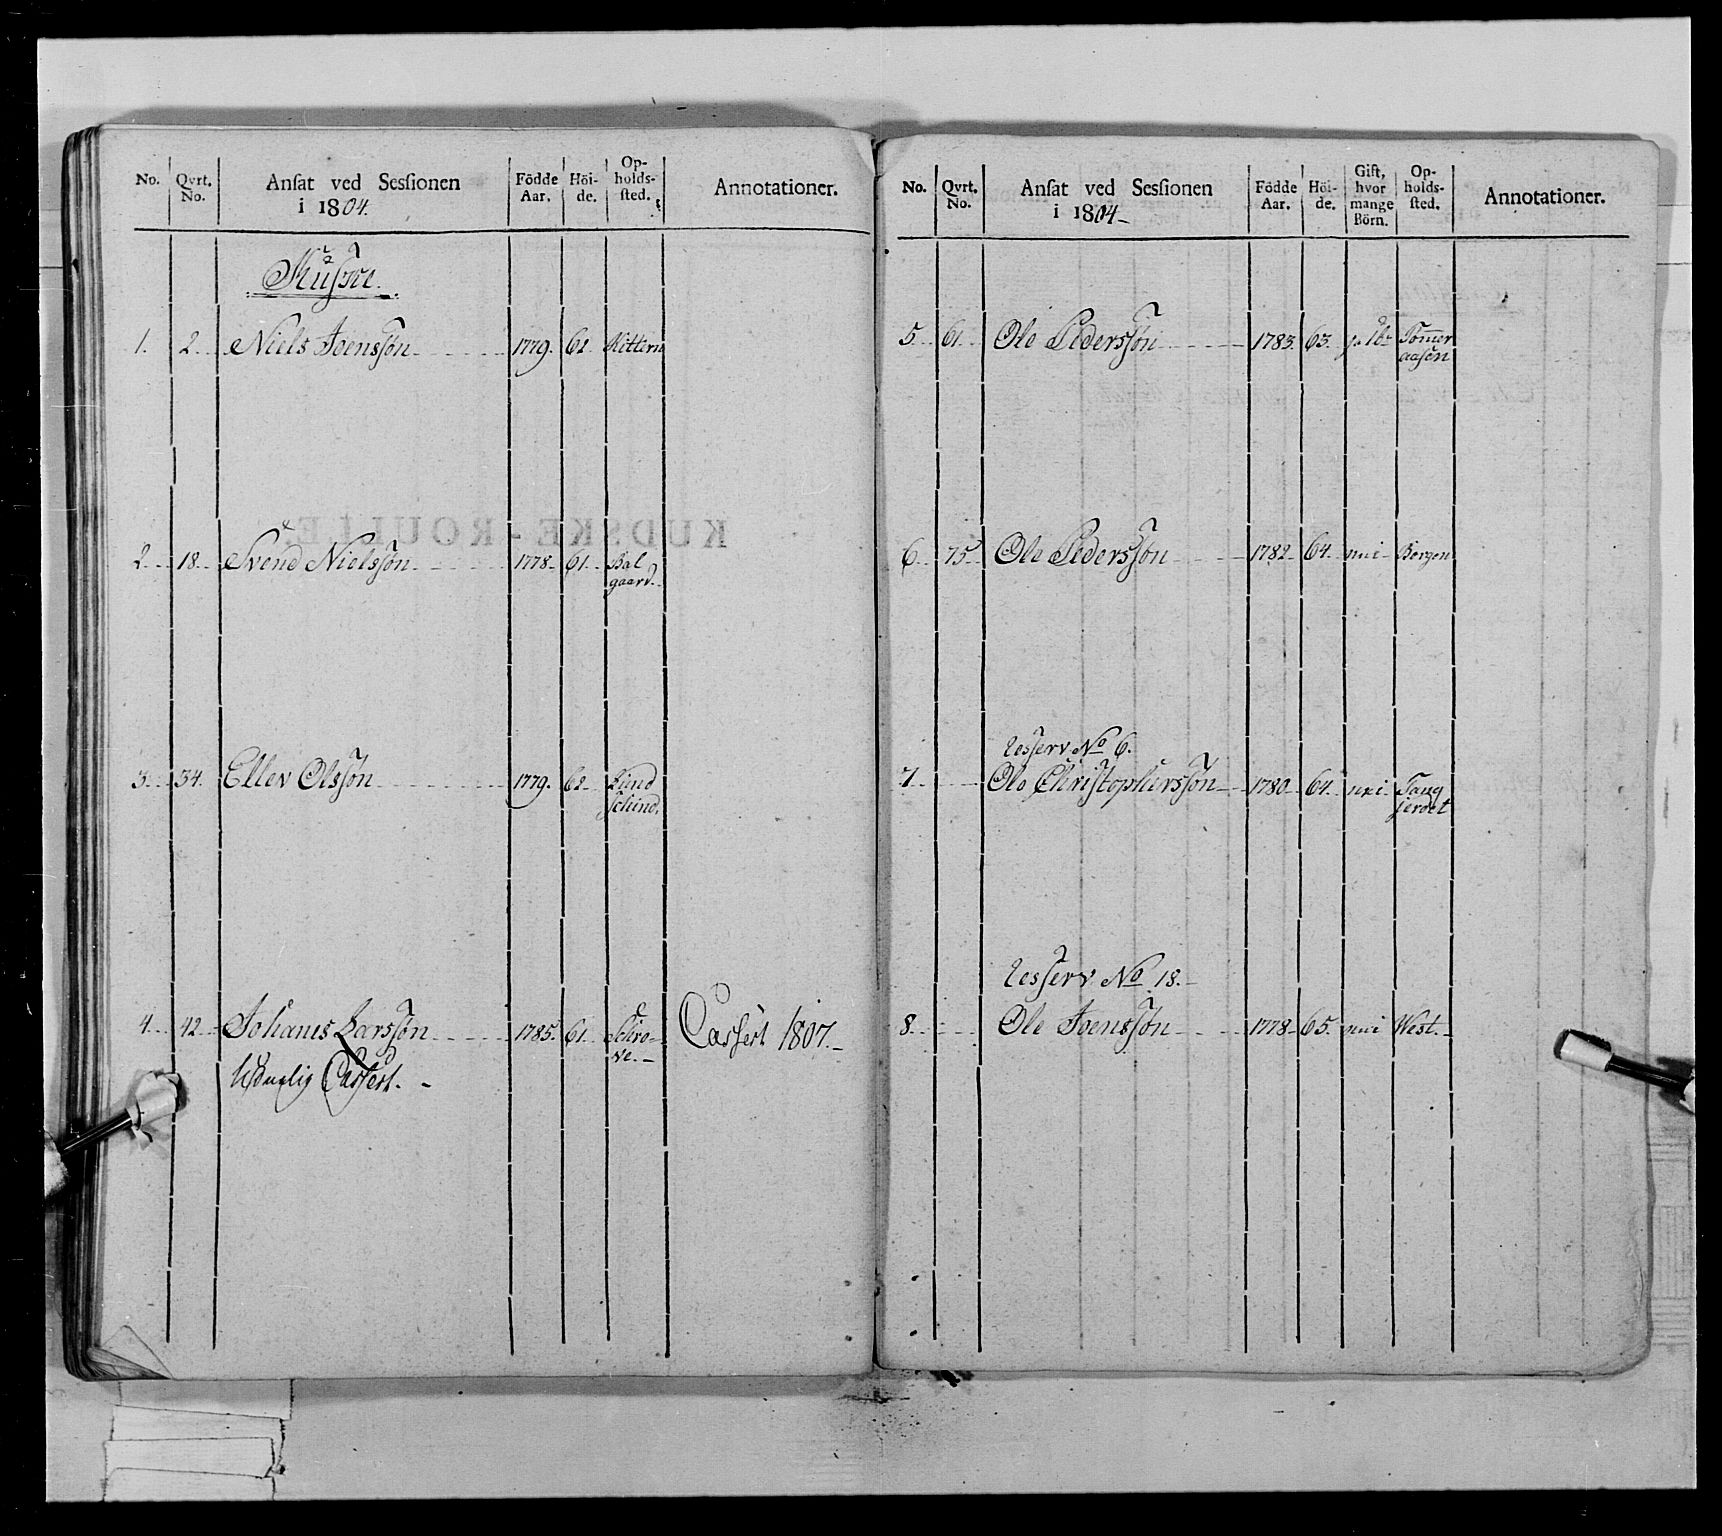 No. Qvrt. No. Ansat ved Sessionen i 1804. Födde Aar. Höi- de. Op- holds- sted. Annotationer.
1. 2. Niels Joenssøn 1779. 62. Kittern
2. 18. Svend Nielssøn 1778. 61. Bal
gaard.
3. 34. Ellev Olssøn 1779. 62. Lund
4. 42. Johanes Larssøn 1785. 61. Schro-
ve.- Cassert 1807.-
Uduelig Cassert. -
No. Qvrt. No. Ansat ved Sessionen i 1804- Födde Aar. Höi- de. Gift, hvor mange Börn. Op- holds- sted. Annotationer.
5. 61. Ole Pederssøn 1783. 63. ja 1b- Tømer
aasen
6. 75. Ole Pederssøn 1782. 64. nei Bergen
Resserv No 6.
7. Ole Christopherssøn 1780. 64. nei Tang
jerdet
Resserv No 18.-
8. Ole Joenssøn 1778. 65. nei West.
KUDSKE-ROULLE.